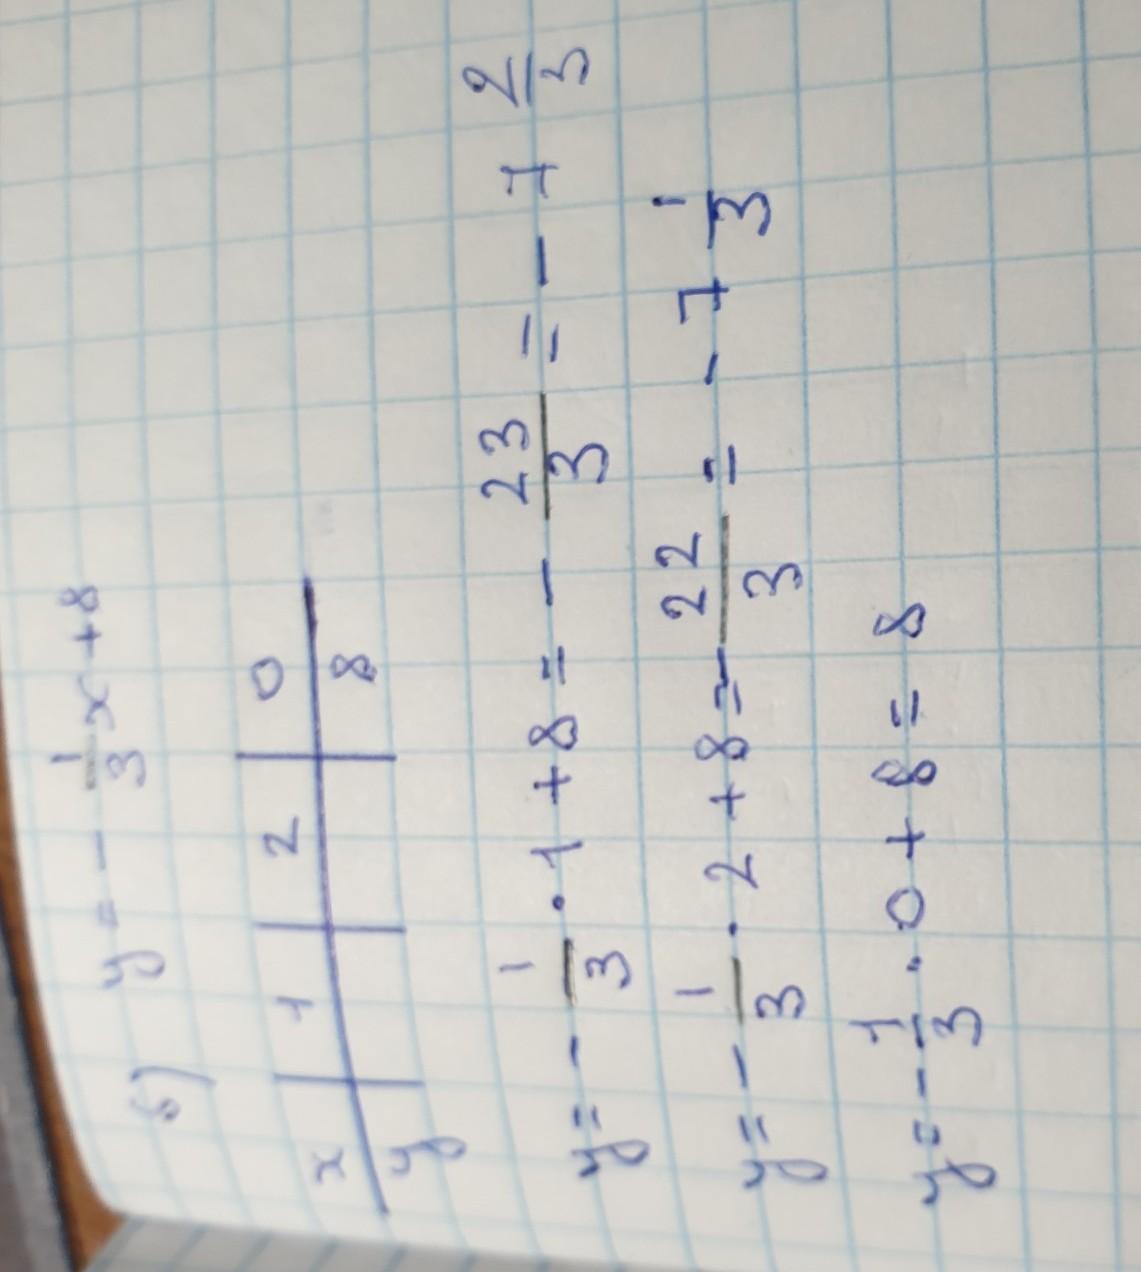 б) y = - 1/3 x + 8
x 1 2 0
y 8
y = - 1/3 · 1 + 8 = - 23/3 = - 7 2/3
y = - 1/3 · 2 + 8 = - 22/3 = - 7 1/3
y = - 1/3 · 0 + 8 = 8